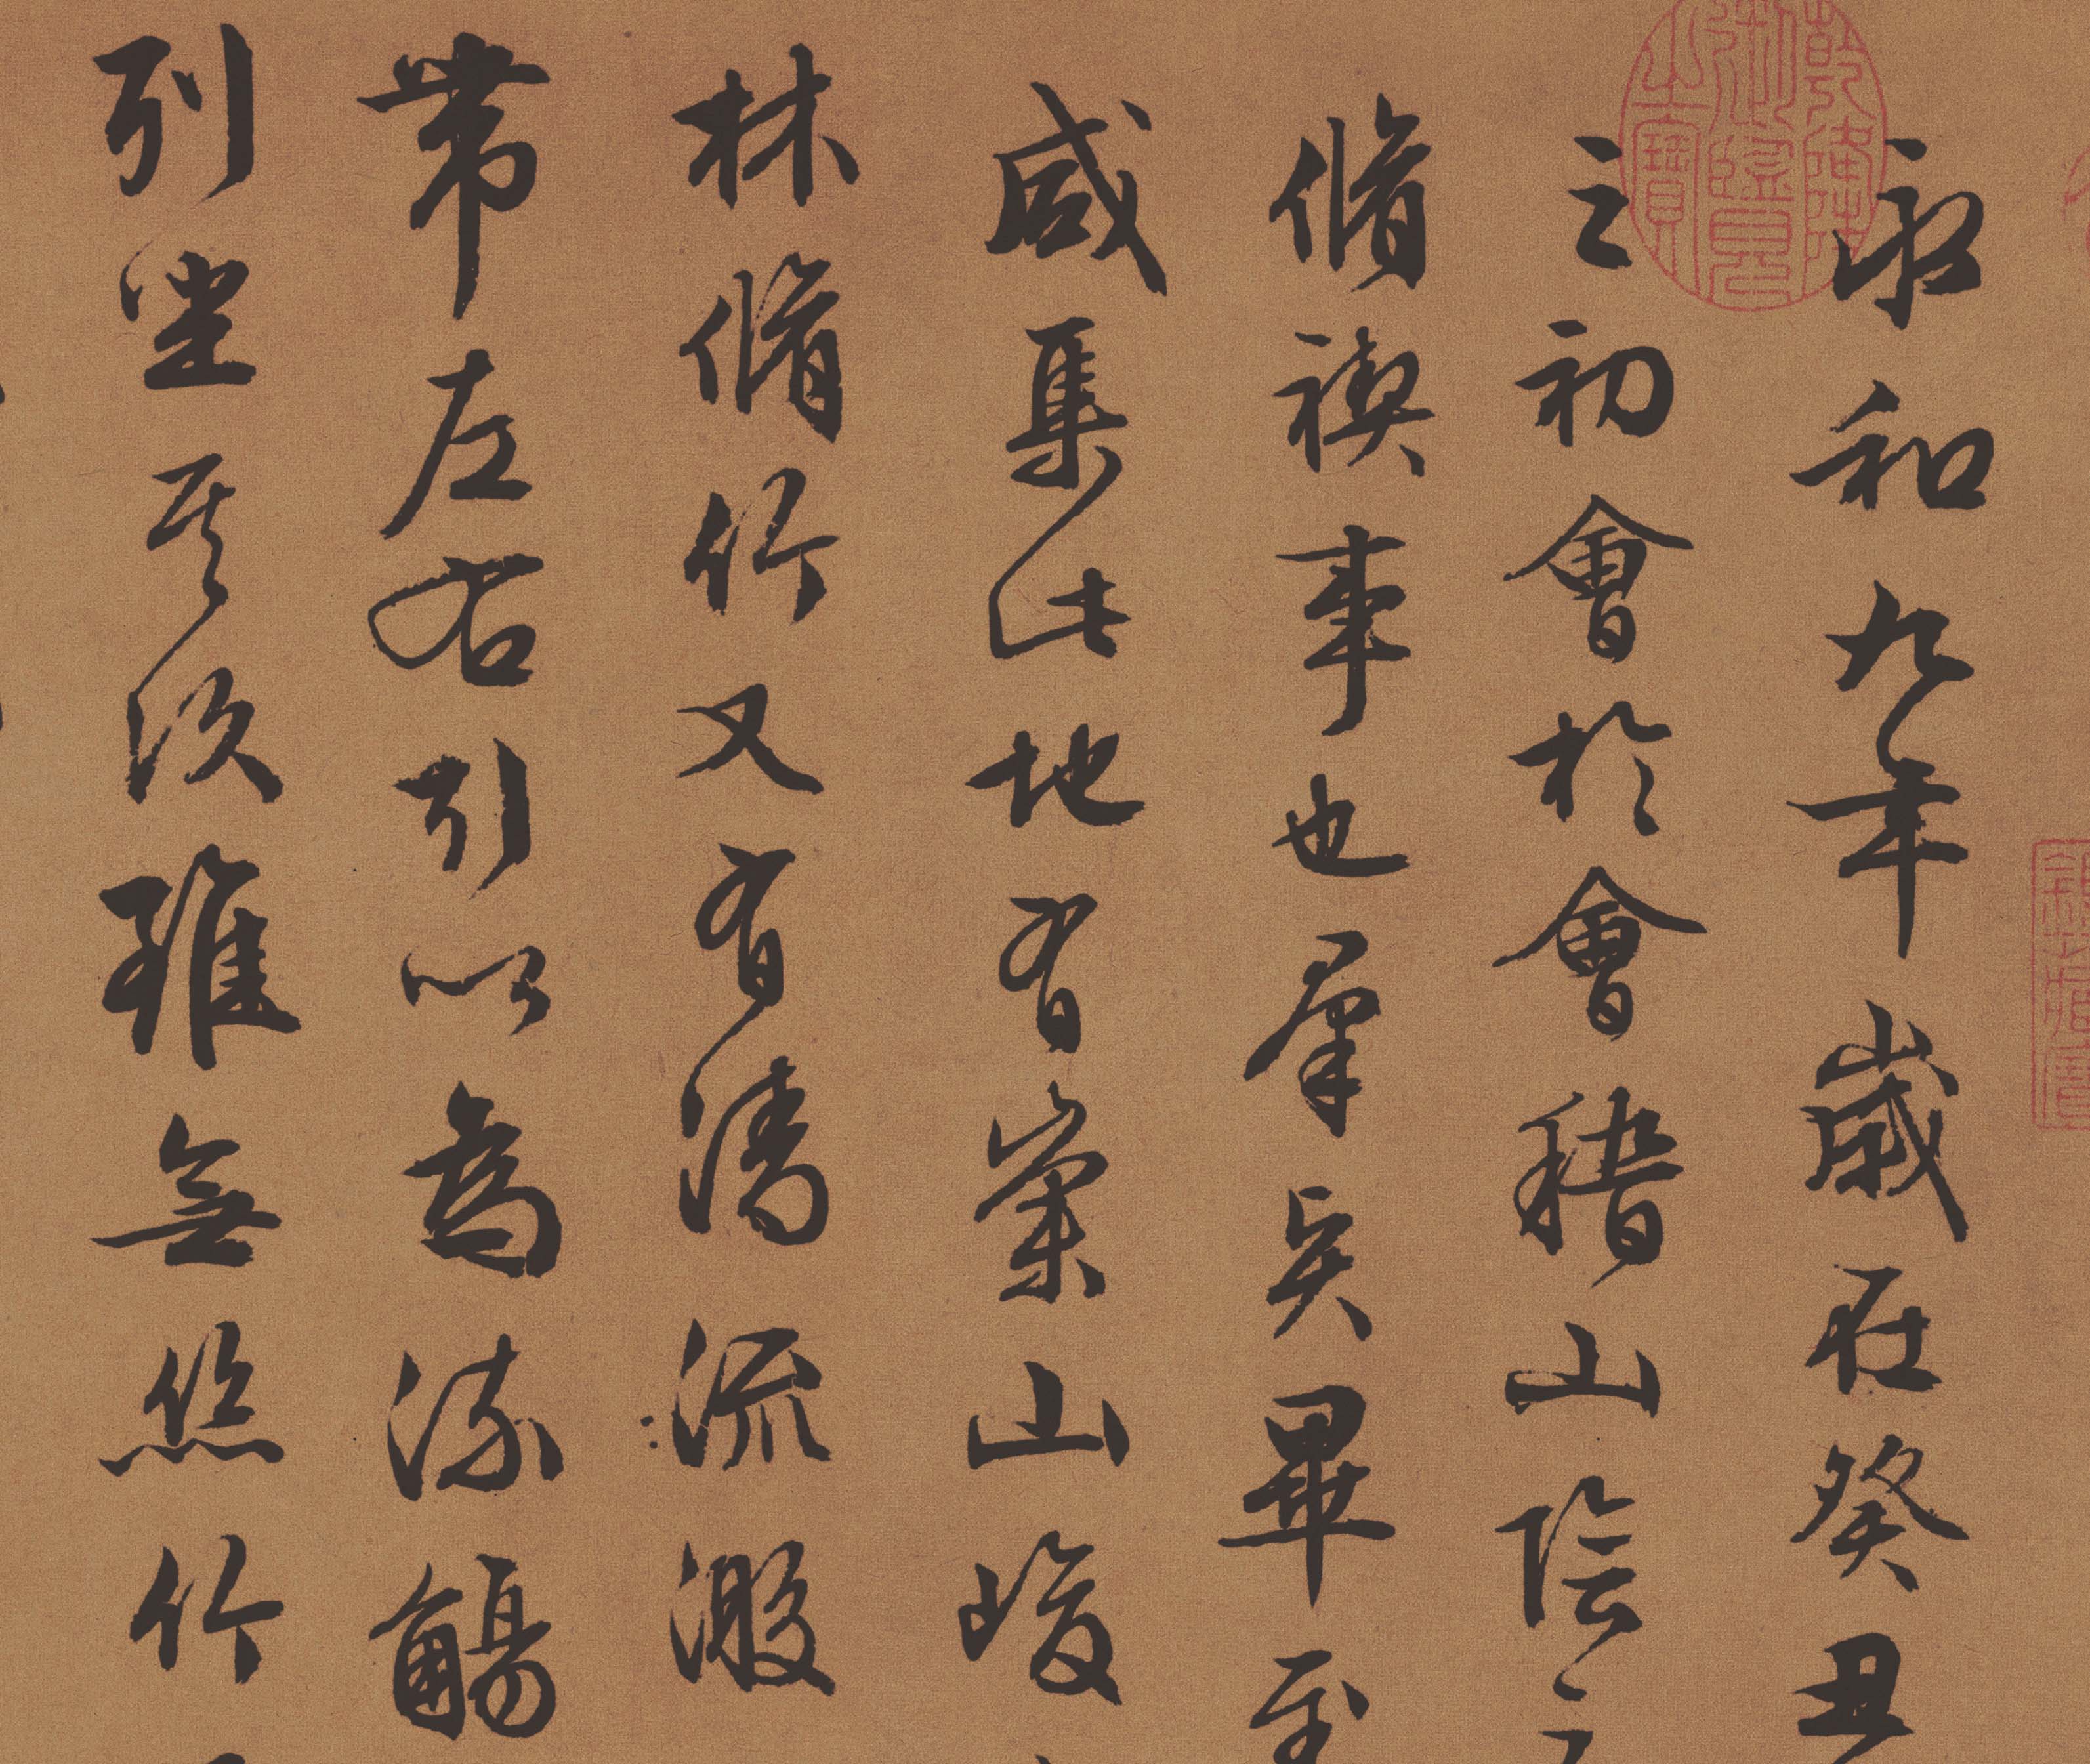 永和九年歲在癸丑
之初會於會稽山陰之
脩禊事也羣賢畢至
咸集此地有崇山峻
林脩竹又有清流激
帶左右引以為流觴
列坐其次雖無絲竹
乾隆御覽之寶